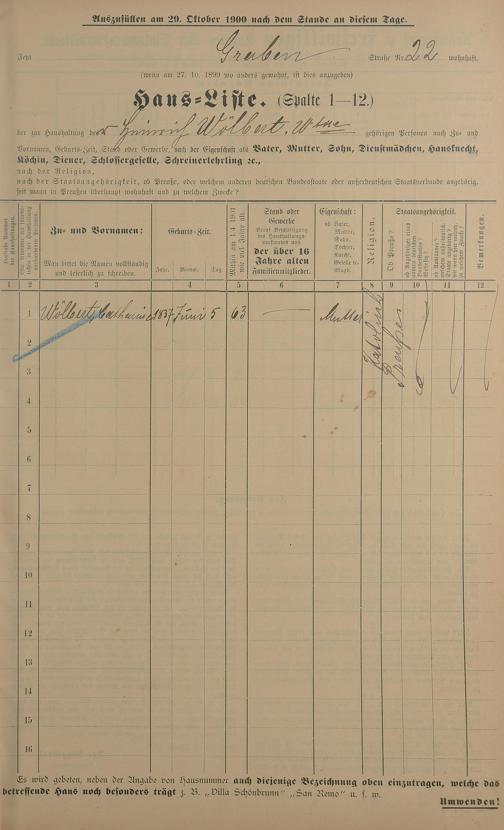 Auszufüllen am 29. Oktober 1900 nach dem Stande an diesem Tage.
Jetzt Graben Straße Nr. 22 wohnhaft.
(wenn am 27. 10. 1899 wo anders gewohnt, ist dies anzugeben)
Haus-Liste. (Spalte 1—12.)
der zur Haushaltung der Heinrich Wölbert, Wtwe gehörigen Personen nach Zu- und
Vornamen, Geburts-Zeit, Stand oder Gewerbe, nach der Eigenschaft als Vater, Mutter, Sohn, Dienstmädchen, Hausknecht,
Köchin, Diener, Schlossergeselle, Schreinerlehrling ꝛc.,
nach der Religion,
nach der Staatsangehörigkeit, ob Preuße, oder welchem anderen deutschen Bundesstaate oder außerdeutschen Staatsverbande angehörig,
seit wann in Preußen überhaupt wohnhaft und zu welchem Zwecke?
Zu- und Vornamen:
Man bittet die Namen vollständig
und leserlich zu schreiben.
Geburts-Zeit.
Jahr. Monat. Tag.
Mithin am 1/4 1901
wie viel Jahre alt.
Stand oder
Gewerbe
der über 16
Jahre alten
Familienmitglieder.
Eigenschaft:
ob Vater,
Mutter,
Sohn,
Tochter,
Knecht,
Geselle oder
Magd.
Religion.
Staatsangehörigkeit.
Ob Preuße?
Bemerkungen.
1 2 3 4 5 6 7 8 9 10 11 12
1 Wölbert, Catharine 1837 Juni 5 63 — Mutter Katholisch Preußen
2
3
4
5
6
7
8
9
10
11
12
13
14
15
16
Es wird gebeten, neben der Angabe von Hausnummer auch diejenige Bezeichnung oben einzutragen, welche das
betreffende Haus noch besonders trägt z. B. „Villa Schönbrunn" „San Remo" u. s. w.
Umwenden!